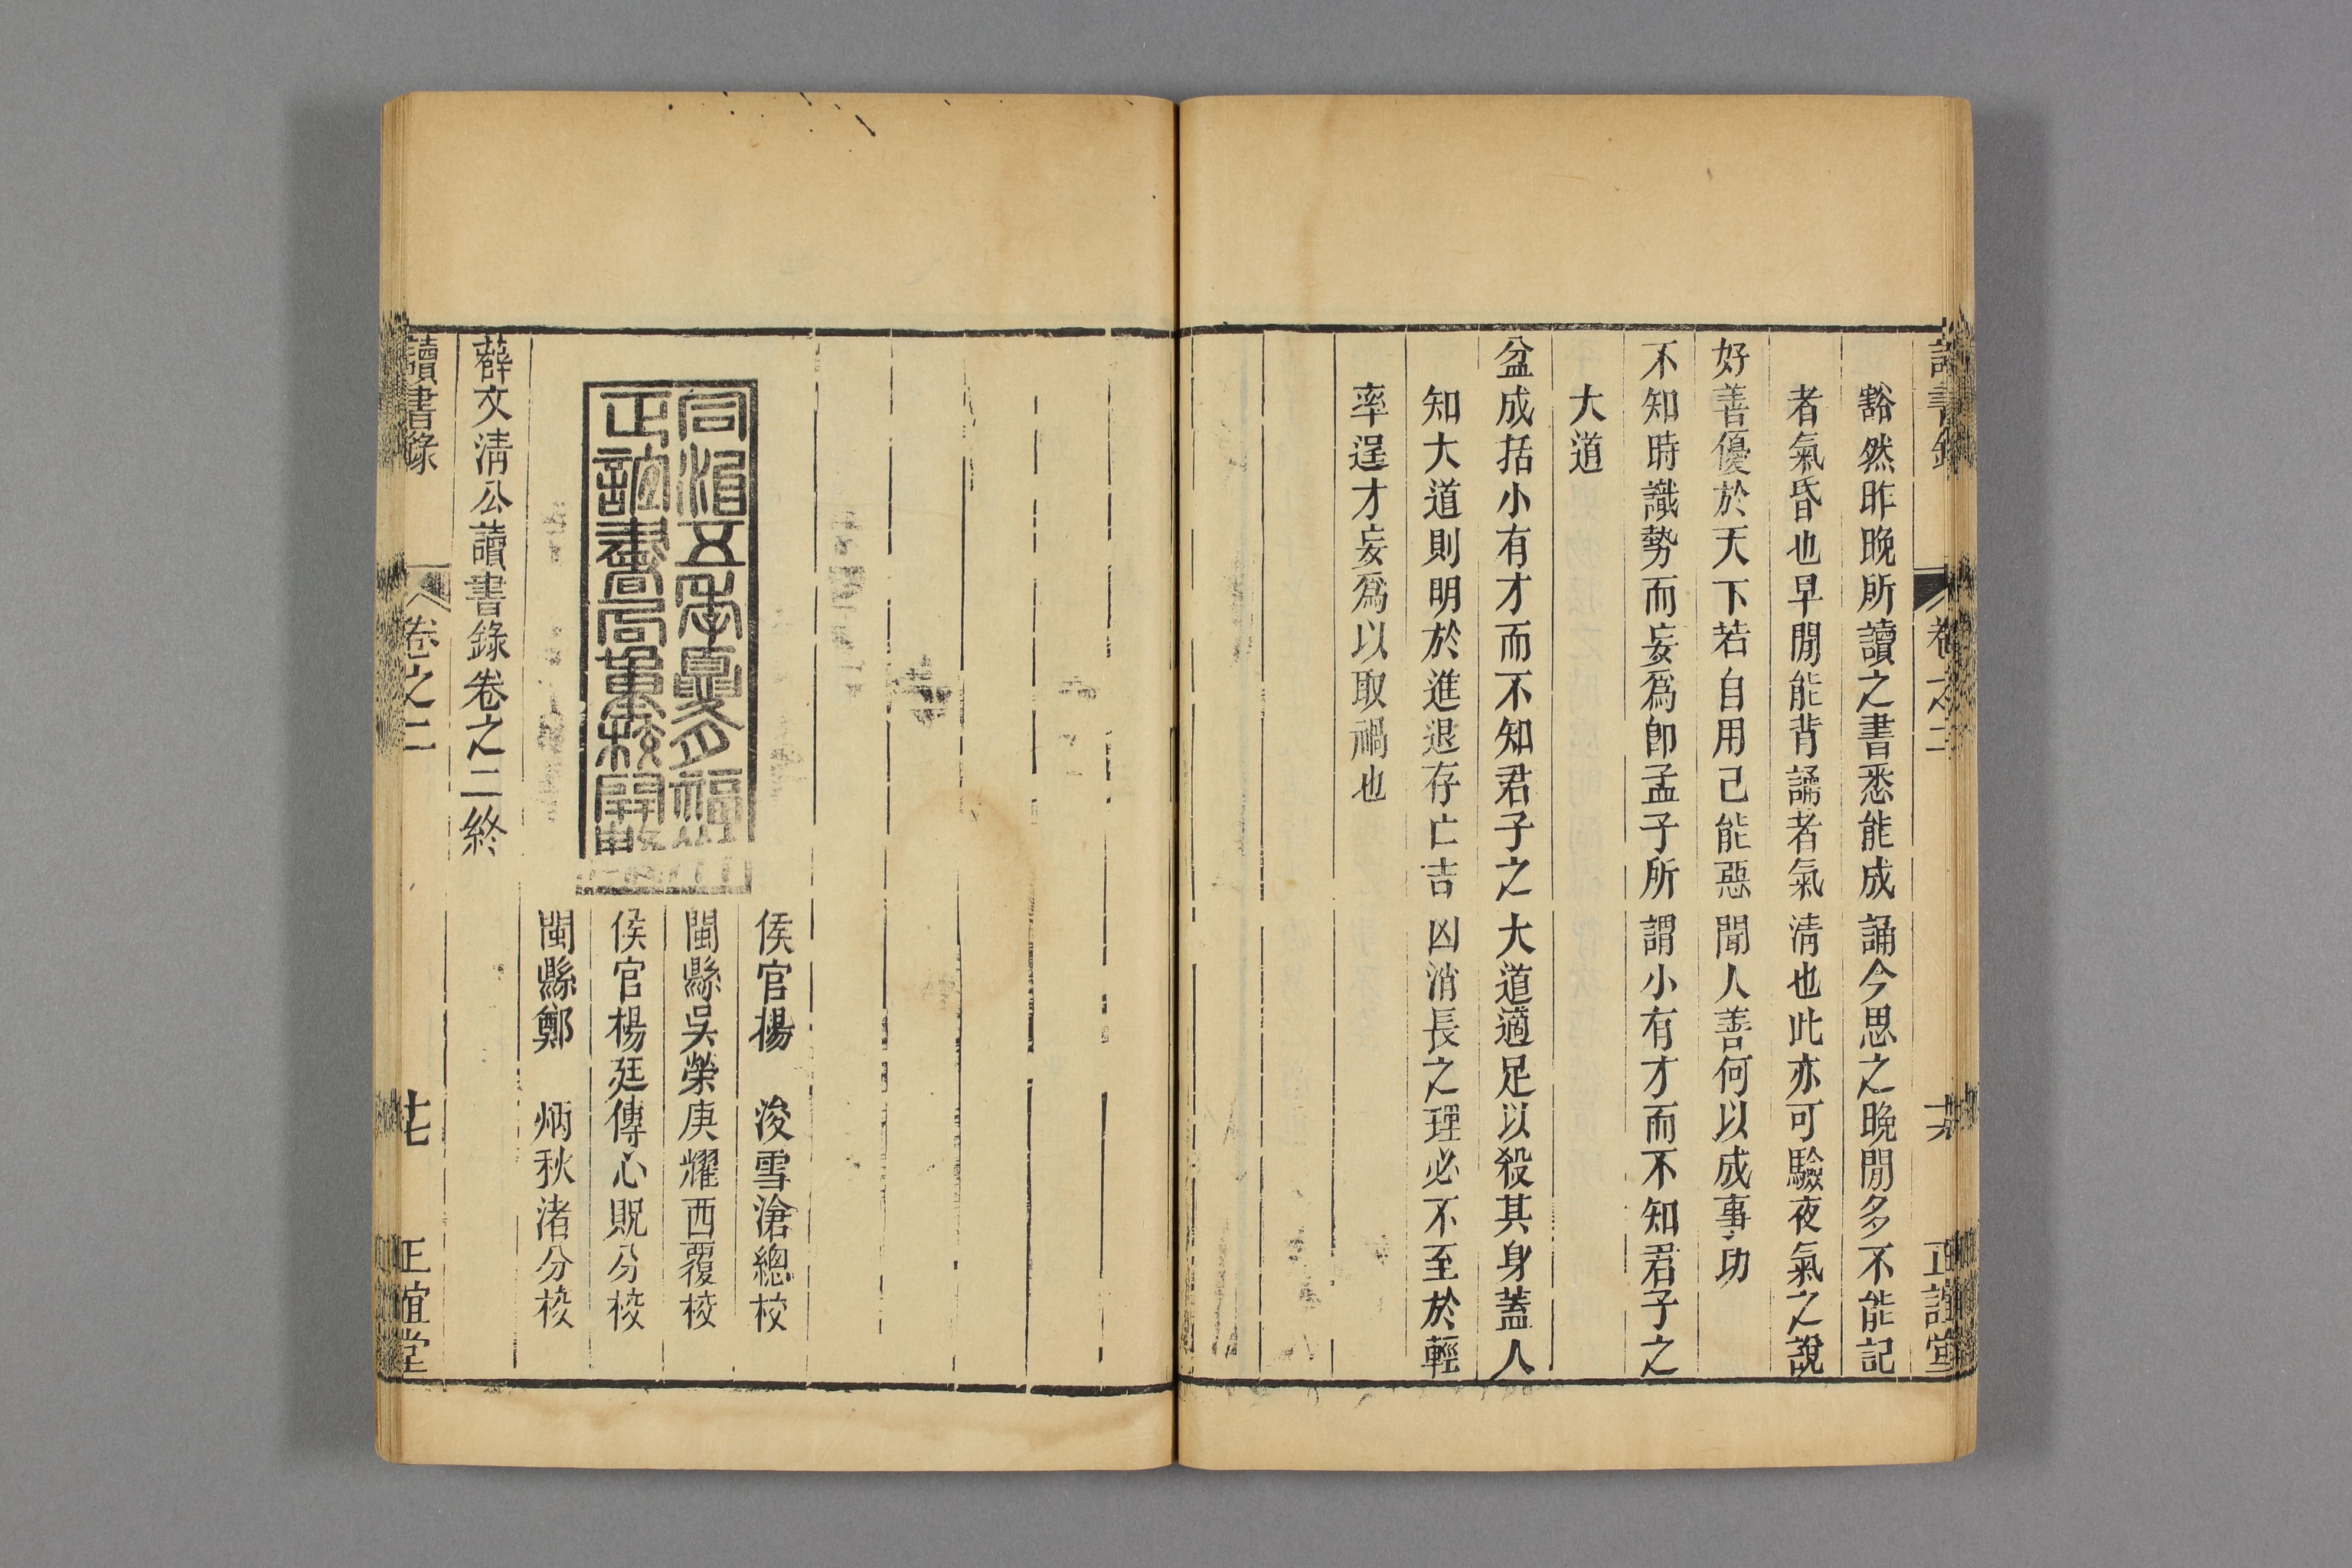 讀書錄 卷之二 正誼堂
豁然昨晚所讀之書悉能成誦今思之晚閒多不能記
者氣昏也早閒能背誦者氣清也此亦可驗夜氣之說
好善優於天下若自用己能惡聞人善何以成事功
不知時識勢而妄爲卽孟子所謂小有才而不知君子之
大道
盆成括小有才而不知君子之大道適足以殺其身蓋人
知大道則明於進退存亡吉凶消長之理必不至於輕
率逞才妄爲以取禍也
同治五年夏月福州
正誼書局重校開雕
侯官楊 浚雪滄總校
閩縣吳榮庚耀西覆校
侯官楊廷傳心貺分校
閩縣鄭 炳秋渚分校
薛文清公讀書錄卷之二終
讀書錄 卷之二 正誼堂